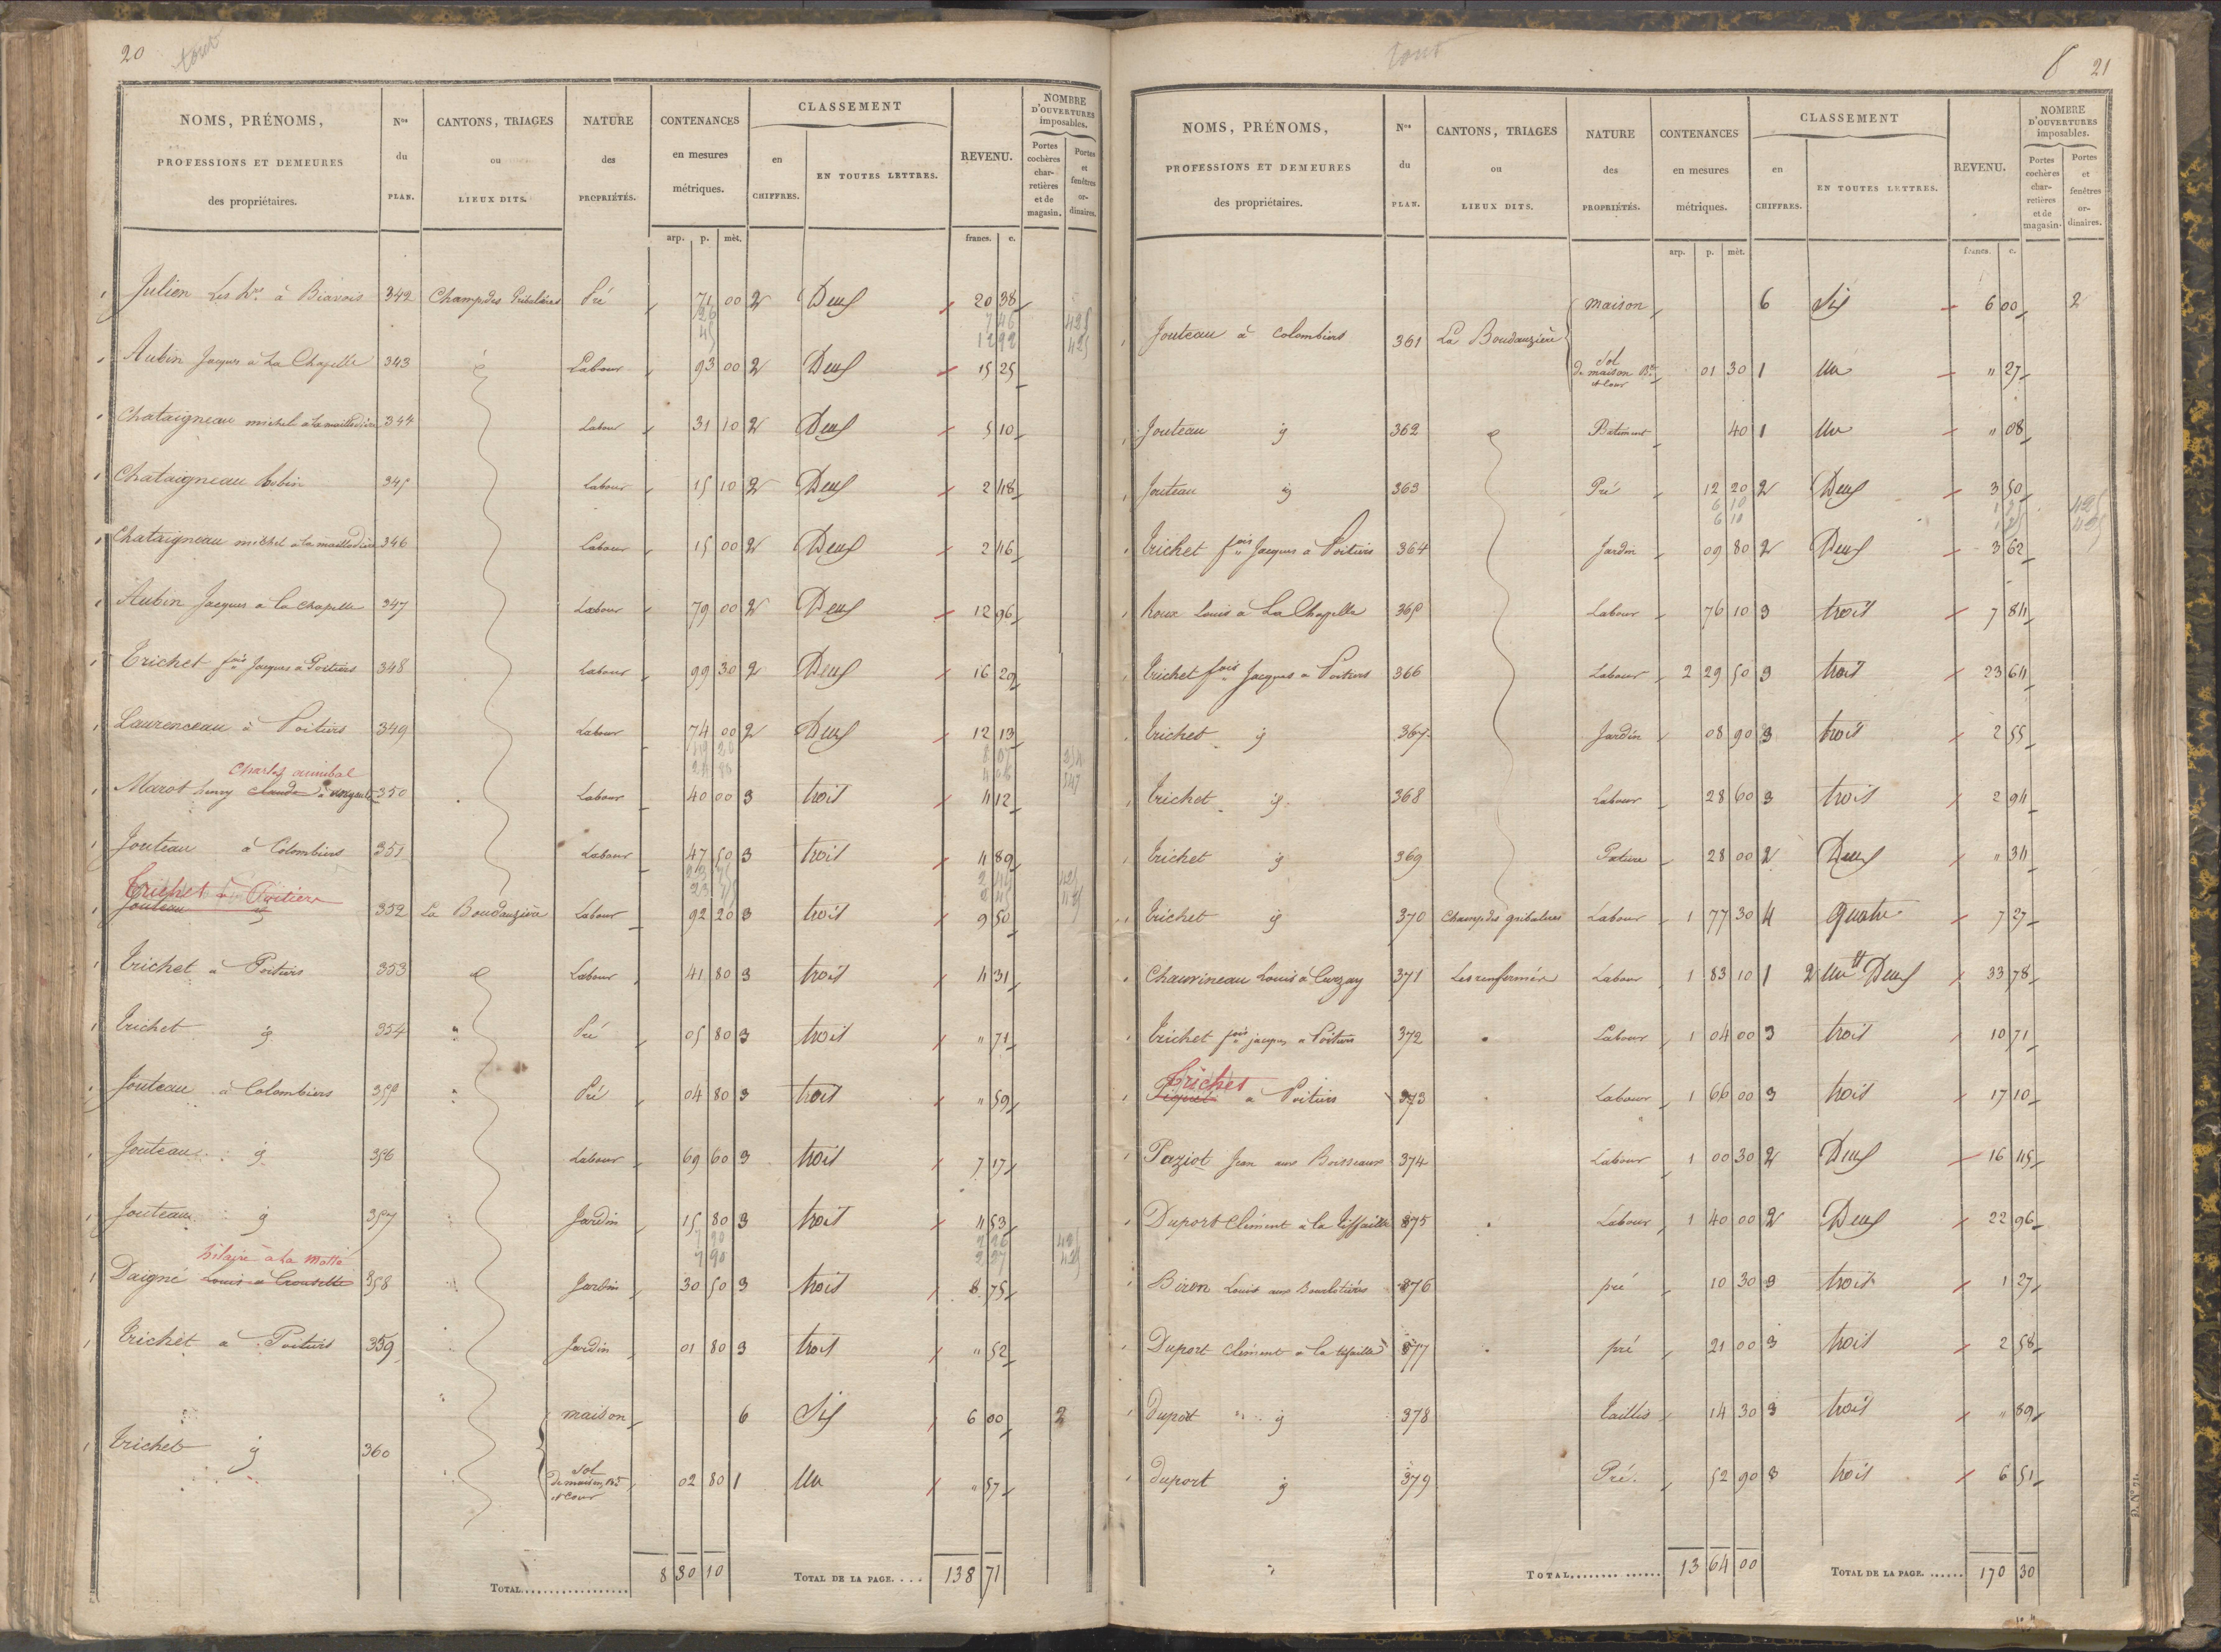 20
tout
NOMS, PRÉNOMS,
PROFESSIONS ET DEMEURES
des propriétaires.
Nos du PLAN.
CANTONS, TRIAGES ou LIEUX DITS.
NATURE des PROPRIÉTÉS.
CONTENANCES en mesures métriques.
arp. p. mèt.
CLASSEMENT
en CHIFFRES.
EN TOUTES LETTRES.
REVENU.
francs. c.
NOMBRE D'OUVERTURES imposables.
Portes cochères charretières et de magasin.
Portes et fenêtres ordinaires.
Julien Les hrs à Biavois 342 Champ des Gribalières Pré 71 00 2 Deux 20 38
26 7 46 425
45 12 92 425
Aubin Jacques à La Chapelle 343 Labour 93 00 2 Deux 15 25
Chataigneau michel 344 Labour 31 10 2 Deux 5 10
Chataigneau 345 Labour 15 10 2 Deux 2 48
Chataigneau michel 346 Labour 15 00 2 Deux 2 46
Aubin Jacques a la chapelle 347 Labour 79 00 2 Deux 12 96
Trichet fois Jacques a Poitiers 348 Labour 99 30 2 Deux 16 29
Laurenceau à Poitiers 349 Labour 74 00 2 Deux 12 13
49 20 8 07
24 80 4 06
Charles annibal
Marot henry claude 350 Labour 40 00 3 trois 4 12
Jouteau à Colombiers 351 Labour 47 50 3 trois 4 89
23 75 2 44 425
23 75 2 45 425
Trichet a Poitiers
Jouteau id 352 La Boudauzière Labour 92 20 3 trois 9 50
Trichet a Poitiers 353 id Labour 41 80 3 trois 4 31
Trichet id 354 " Pré 05 80 3 trois " 71
Jouteau à Colombiers 355 " Pré 04 80 3 trois " 59
Jouteau id 356 Labour 69 60 3 trois 7 17
Jouteau id 357 Jardin 15 80 3 trois 4 53
7 90 2 26 425
7 90 2 27 425
hilaire à la Motte
Daigné Louis a Croutelle 358 Jardin 30 50 3 trois 8 75
Trichet a Poitiers 359 Jardin 01 80 3 trois " 52
maison 6 Six 6 00 2
Trichet id 360
Sol de maison, Bt et cour 02 80 1 Un " 57
TOTAL 8 30 10 TOTAL DE LA PAGE.... 138 71
tout
8 21
NOMS, PRÉNOMS,
PROFESSIONS ET DEMEURES
des propriétaires.
Nos du PLAN.
CANTONS, TRIAGES ou LIEUX DITS.
NATURE des PROPRIÉTÉS.
CONTENANCES en mesures métriques.
arp. p. mèt.
CLASSEMENT
en CHIFFRES.
EN TOUTES LETTRES.
REVENU.
francs. c.
NOMBRE D'OUVERTURES imposables.
Portes cochères charretières et de magasin.
Portes et fenêtres ordinaires.
maison 6 Six 6 00 2
Jouteau à Colombiers 361 La Boudauzière
Sol de maison Bt et cour 01 30 1 Un " 27
Jouteau id 362 id Batiment 40 1 Un " 08
Jouteau id 363 Pré 12 20 2 Deux 3 50
6 10 425
6 10 425
Trichet fois Jacques à Poitiers 364 Jardin 09 80 2 Deux 3 62
Roux Louis a La Chapelle 365 Labour 76 10 3 trois 7 84
Trichet fois Jacques a Poitiers 366 Labour 2 29 50 3 trois 23 64
Trichet id 367 Jardin 08 90 3 trois 2 55
Trichet id 368 Labour 28 60 3 trois 2 94
Trichet id 369 Pature 28 00 2 Deux " 34
Trichet id 370 Champ des gribalières Labour 1 77 30 4 quatre 7 27
Chauvineau Louis a Curzay 371 Les renfermés Labour 1 83 10 1 2 Un et Deux 33 78
Trichet fois jacques a Poitiers 372 Labour 1 04 00 3 trois 10 71
Trichet
a Poitiers 373 Labour 1 66 00 3 trois 17 10
Paziot Jean aux Boisseaux 374 Labour 1 00 30 2 Deux 16 45
Duport Clément a la 375 Labour 1 40 00 2 Deux 22 96
Biron Louis aux 376 pré 10 30 3 trois 1 27
Duport Clément a la 377 pré 21 00 3 trois 2 58
Duport id 378 Taillis 14 30 3 trois " 89
duport id 379 Pré. 52 90 3 trois 6 51
TOTAL 13 64 00 TOTAL DE LA PAGE. 170 30